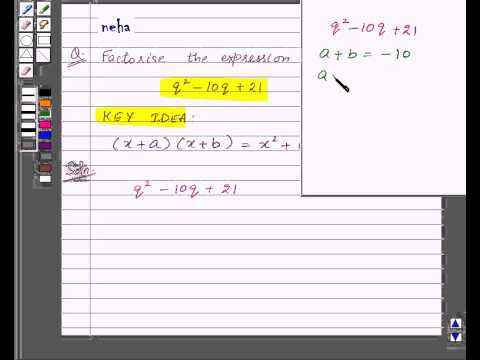 neha
Q. Factorise the expression
q² - 10q + 21
KEY IDEA:
(x + a) (x + b) = x² +
Soln:
q² - 10q + 21
q² - 10q + 21
a + b = -10
a